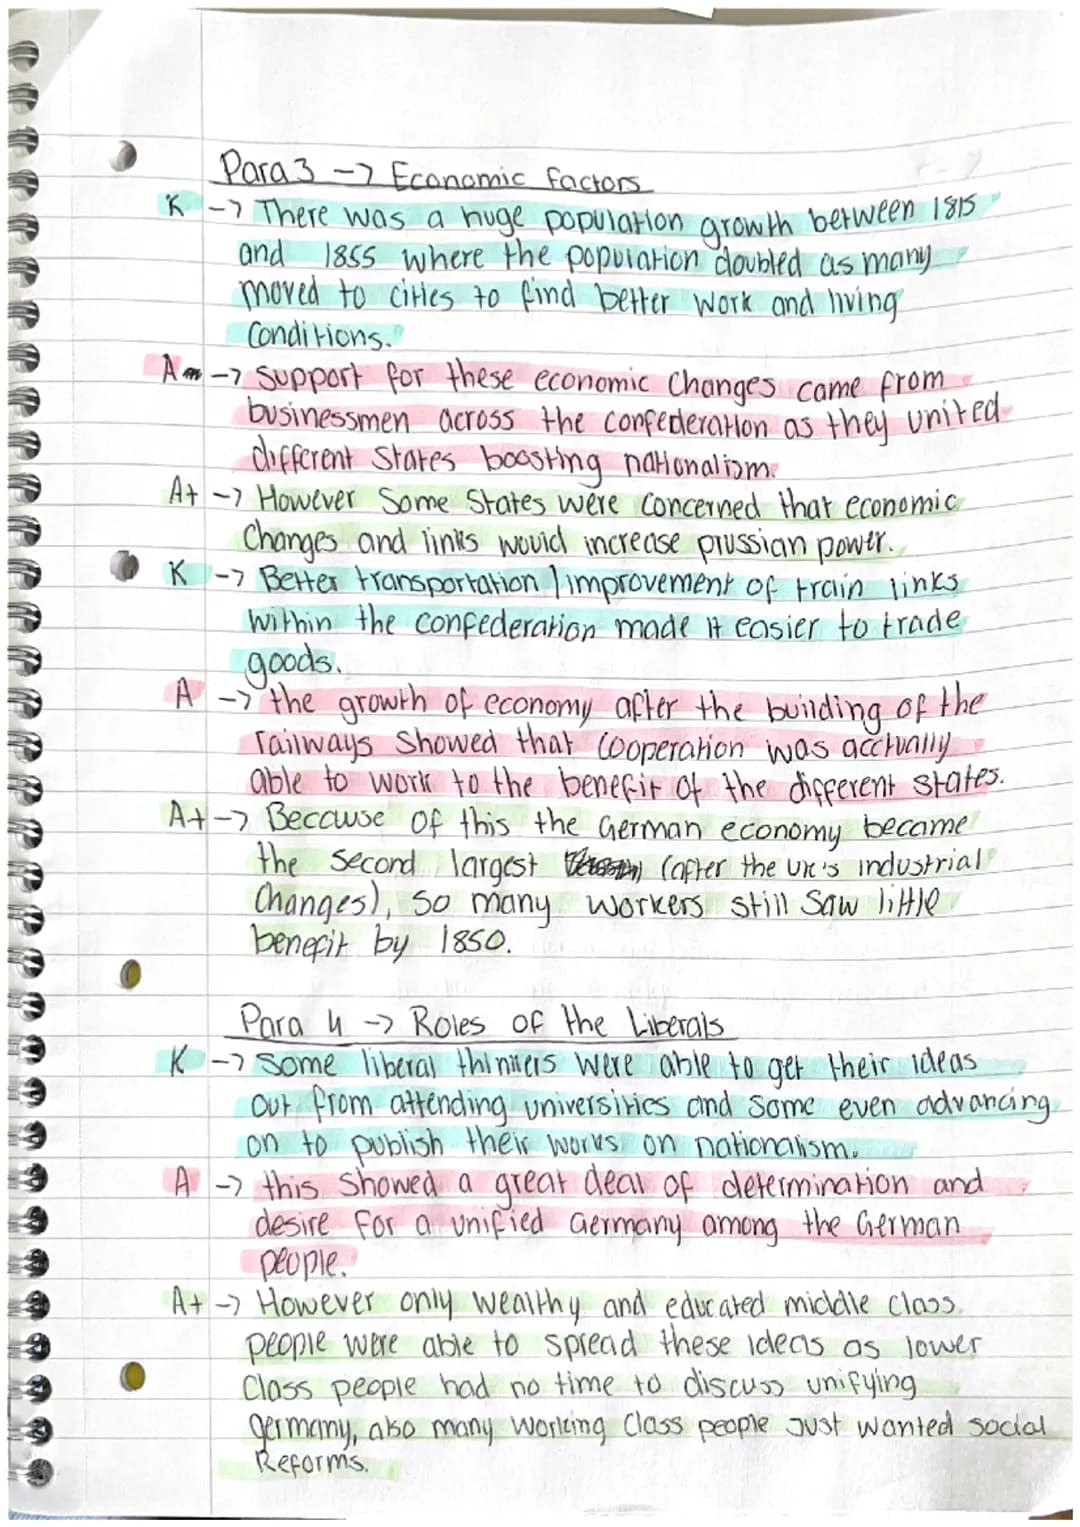 Para 3 -> Economic factors
K -> There was a huge population growth between 1815
and 1855 where the population doubled as many
moved to cities to find better work and living
Conditions.
A -> Support for these economic Changes came from
businessmen across the confederation as they united
different States boosting nationalism.
A+ -> However Some States were concerned that economic
Changes and links would increase prussian power.
K -> Better transportation / improvement of train links
within the confederation made it easier to trade
goods.
A -> the growth of economy after the building of the
railways Showed that Cooperation was acctually
able to work to the benefit of the different states.
A+ -> Because of this the German economy became
the second largest (after the UK's industrial
Changes), So many workers still Saw little
benefit by 1850.
Para 4 -> Roles of the Liberals
K -> Some liberal thinkers were able to get their ideas
out from attending universities and some even advancing
on to publish their works on nationalism.
A -> this showed a great deal of determination and
desire for a unified Germany among the German
people.
A+ -> However only wealthy and educated middle class
people were able to spread these ideas as lower
Class people had no time to discuss unifying
germany, also many working Class people Just wanted social
Reforms.